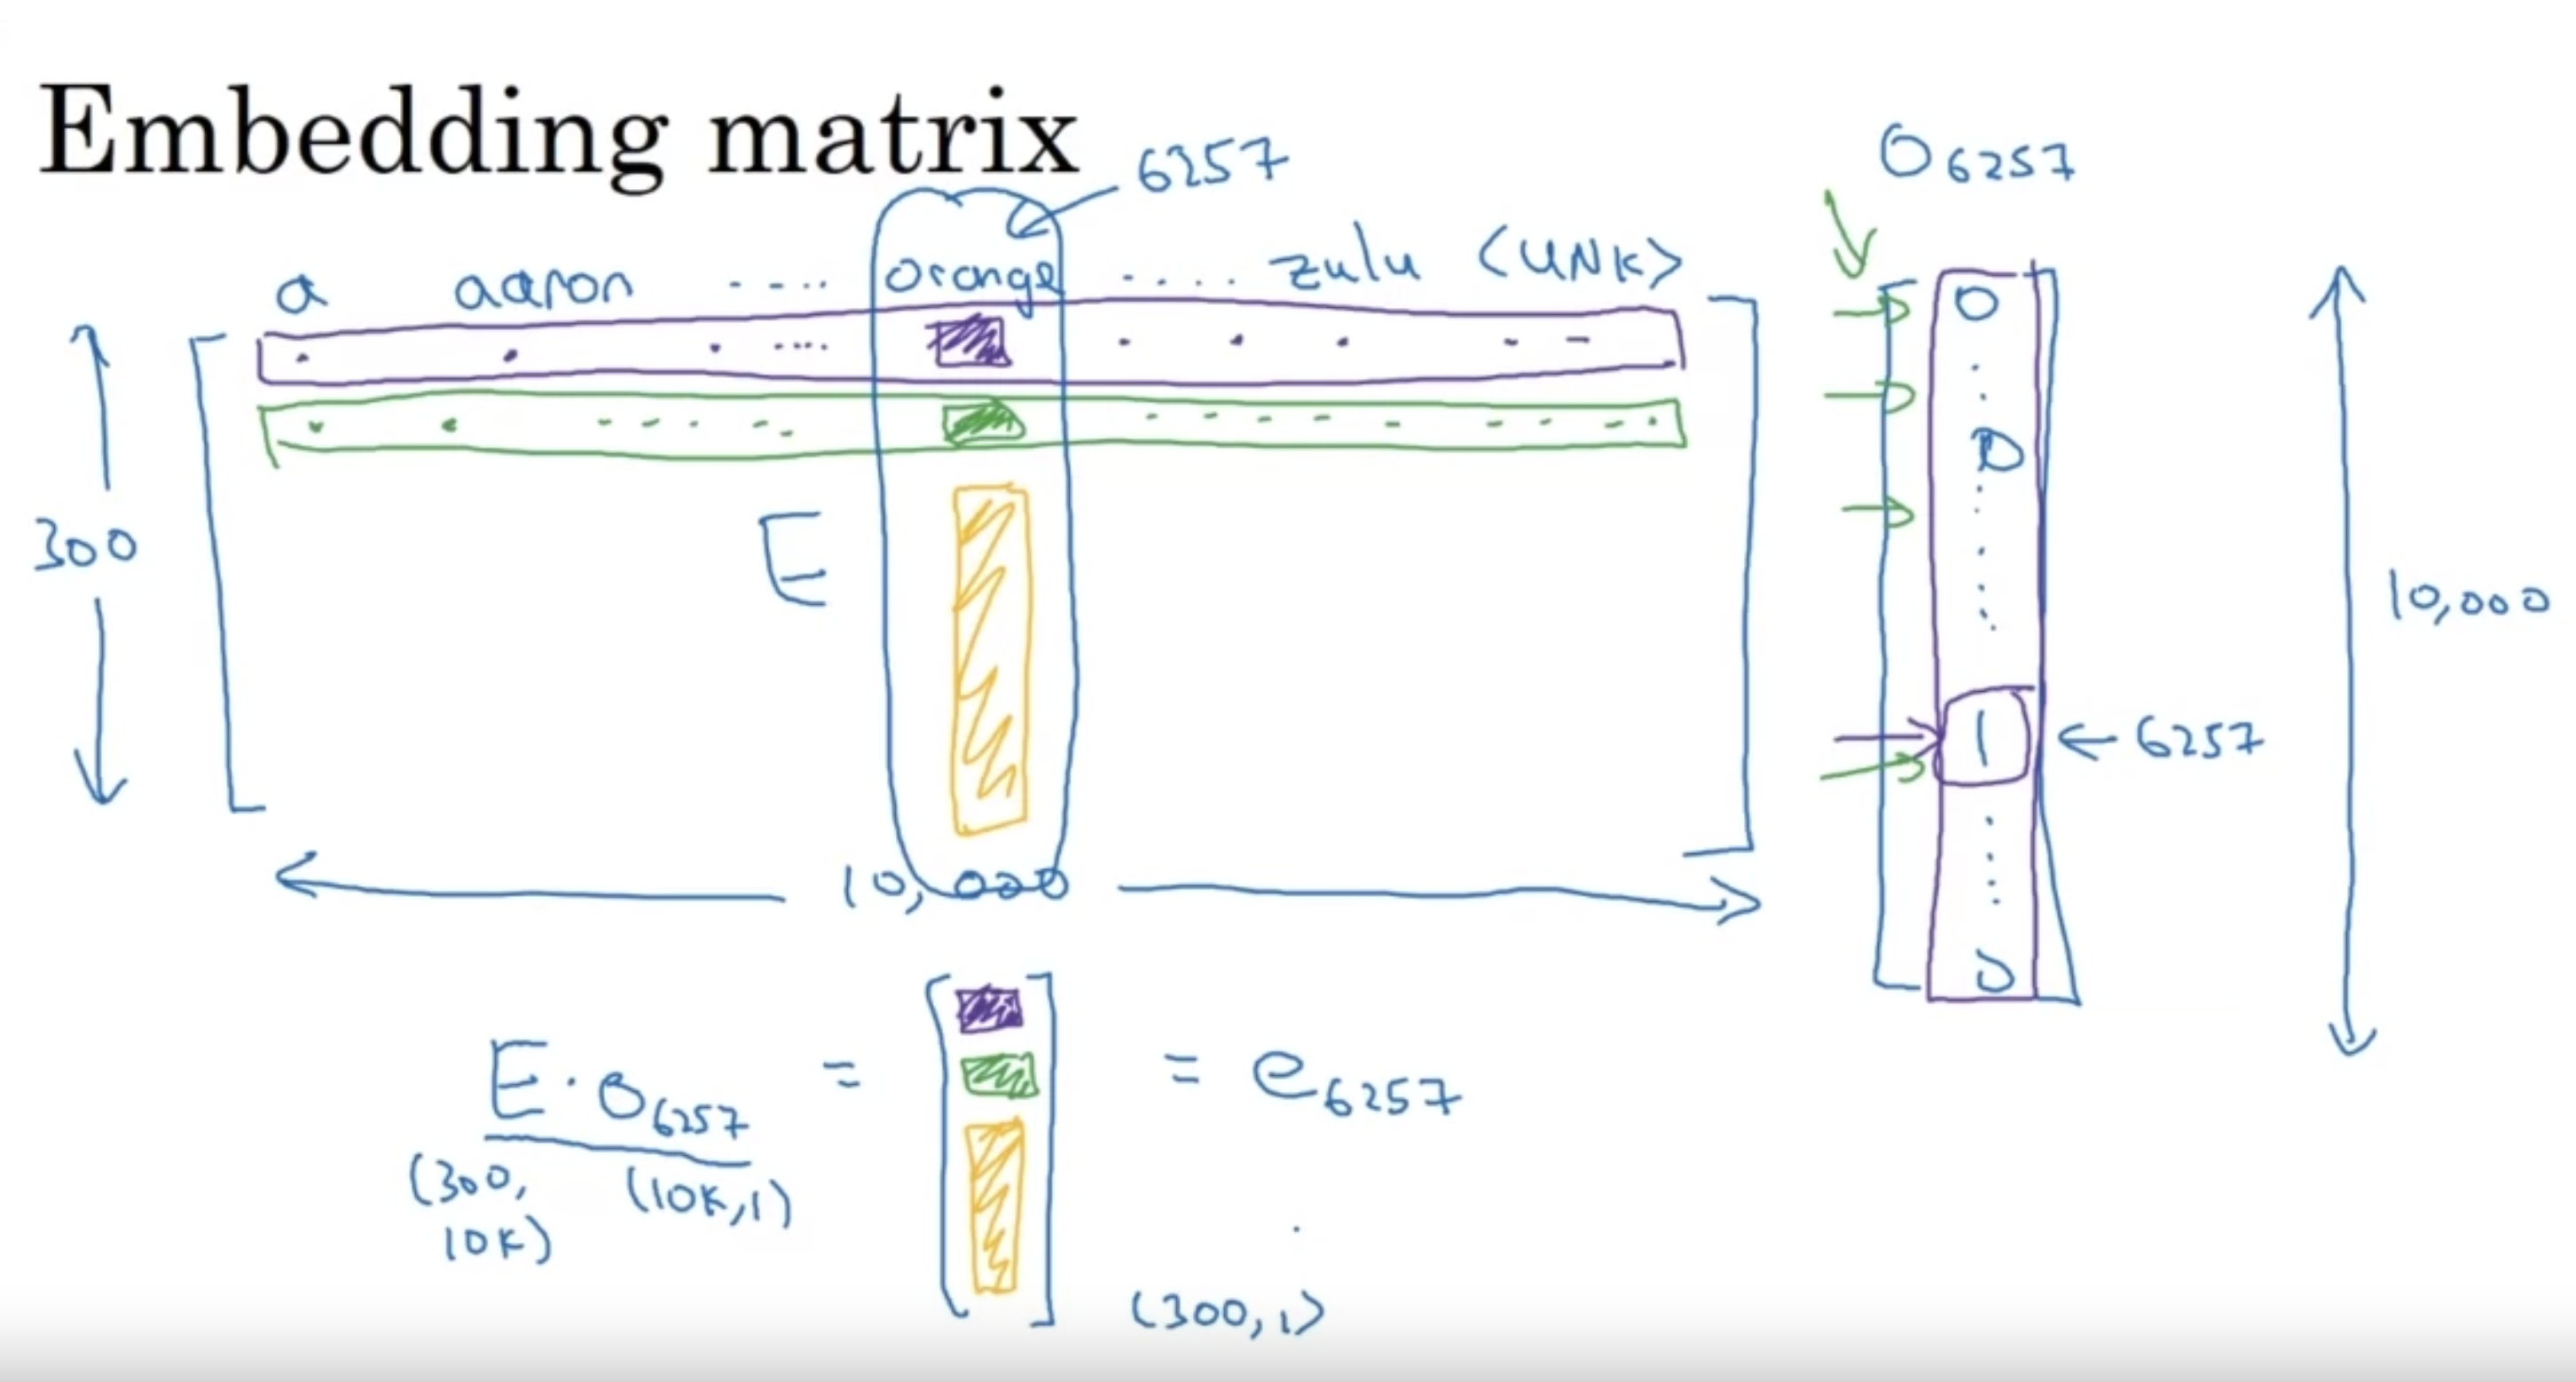 Embedding matrix
6257
O6257
a aaron ..... orange ..... zulu <UNK>
0
0
300
E
10,000
1
← 6257
10,000
0
E · O6257 = [ ] = e6257
(300, (10K,1)
10K)
(300,1)